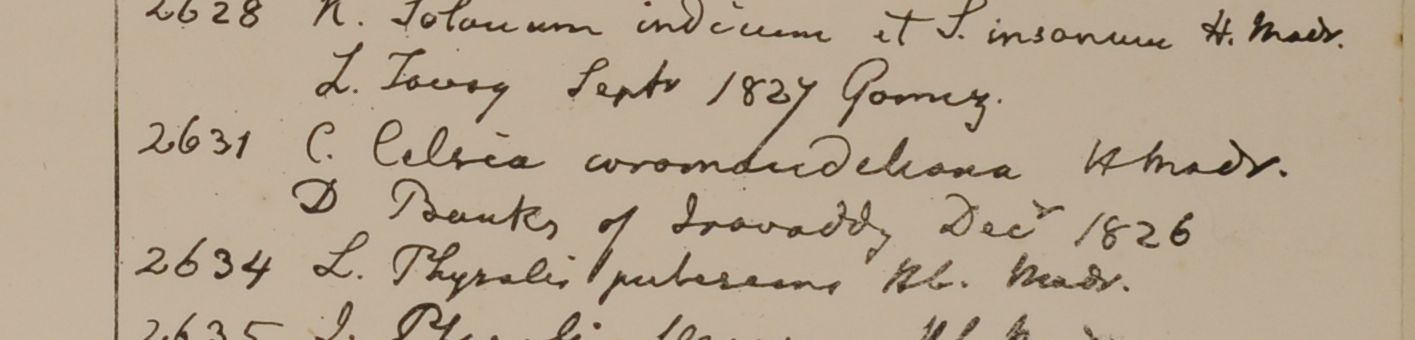 2628 K. Solanum indicum et S. insanum H. Madr.
L. Tavoy Septr 1827 Gomez.
2631 C. Celsia coromandeliana H Madr.
D Banks of Iravaddy Decr 1826
2634 L. Physalis pubescens Hb. Madr.
2635